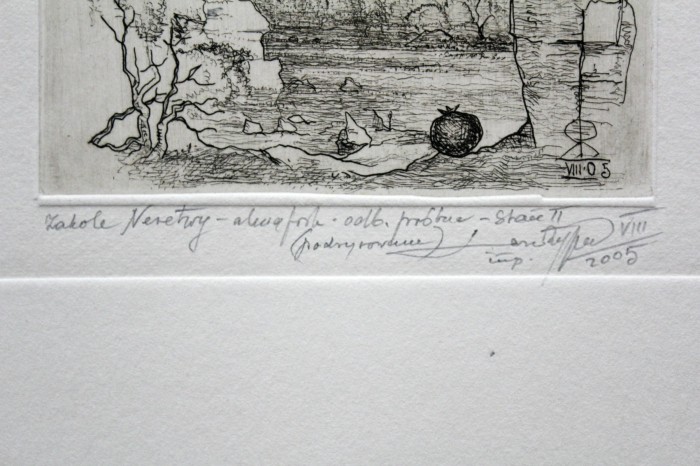 VIII·05
Zakole Neretwy – akwafork · odb. próbne – stan II
(podrysowane) VIII
imp. 2005